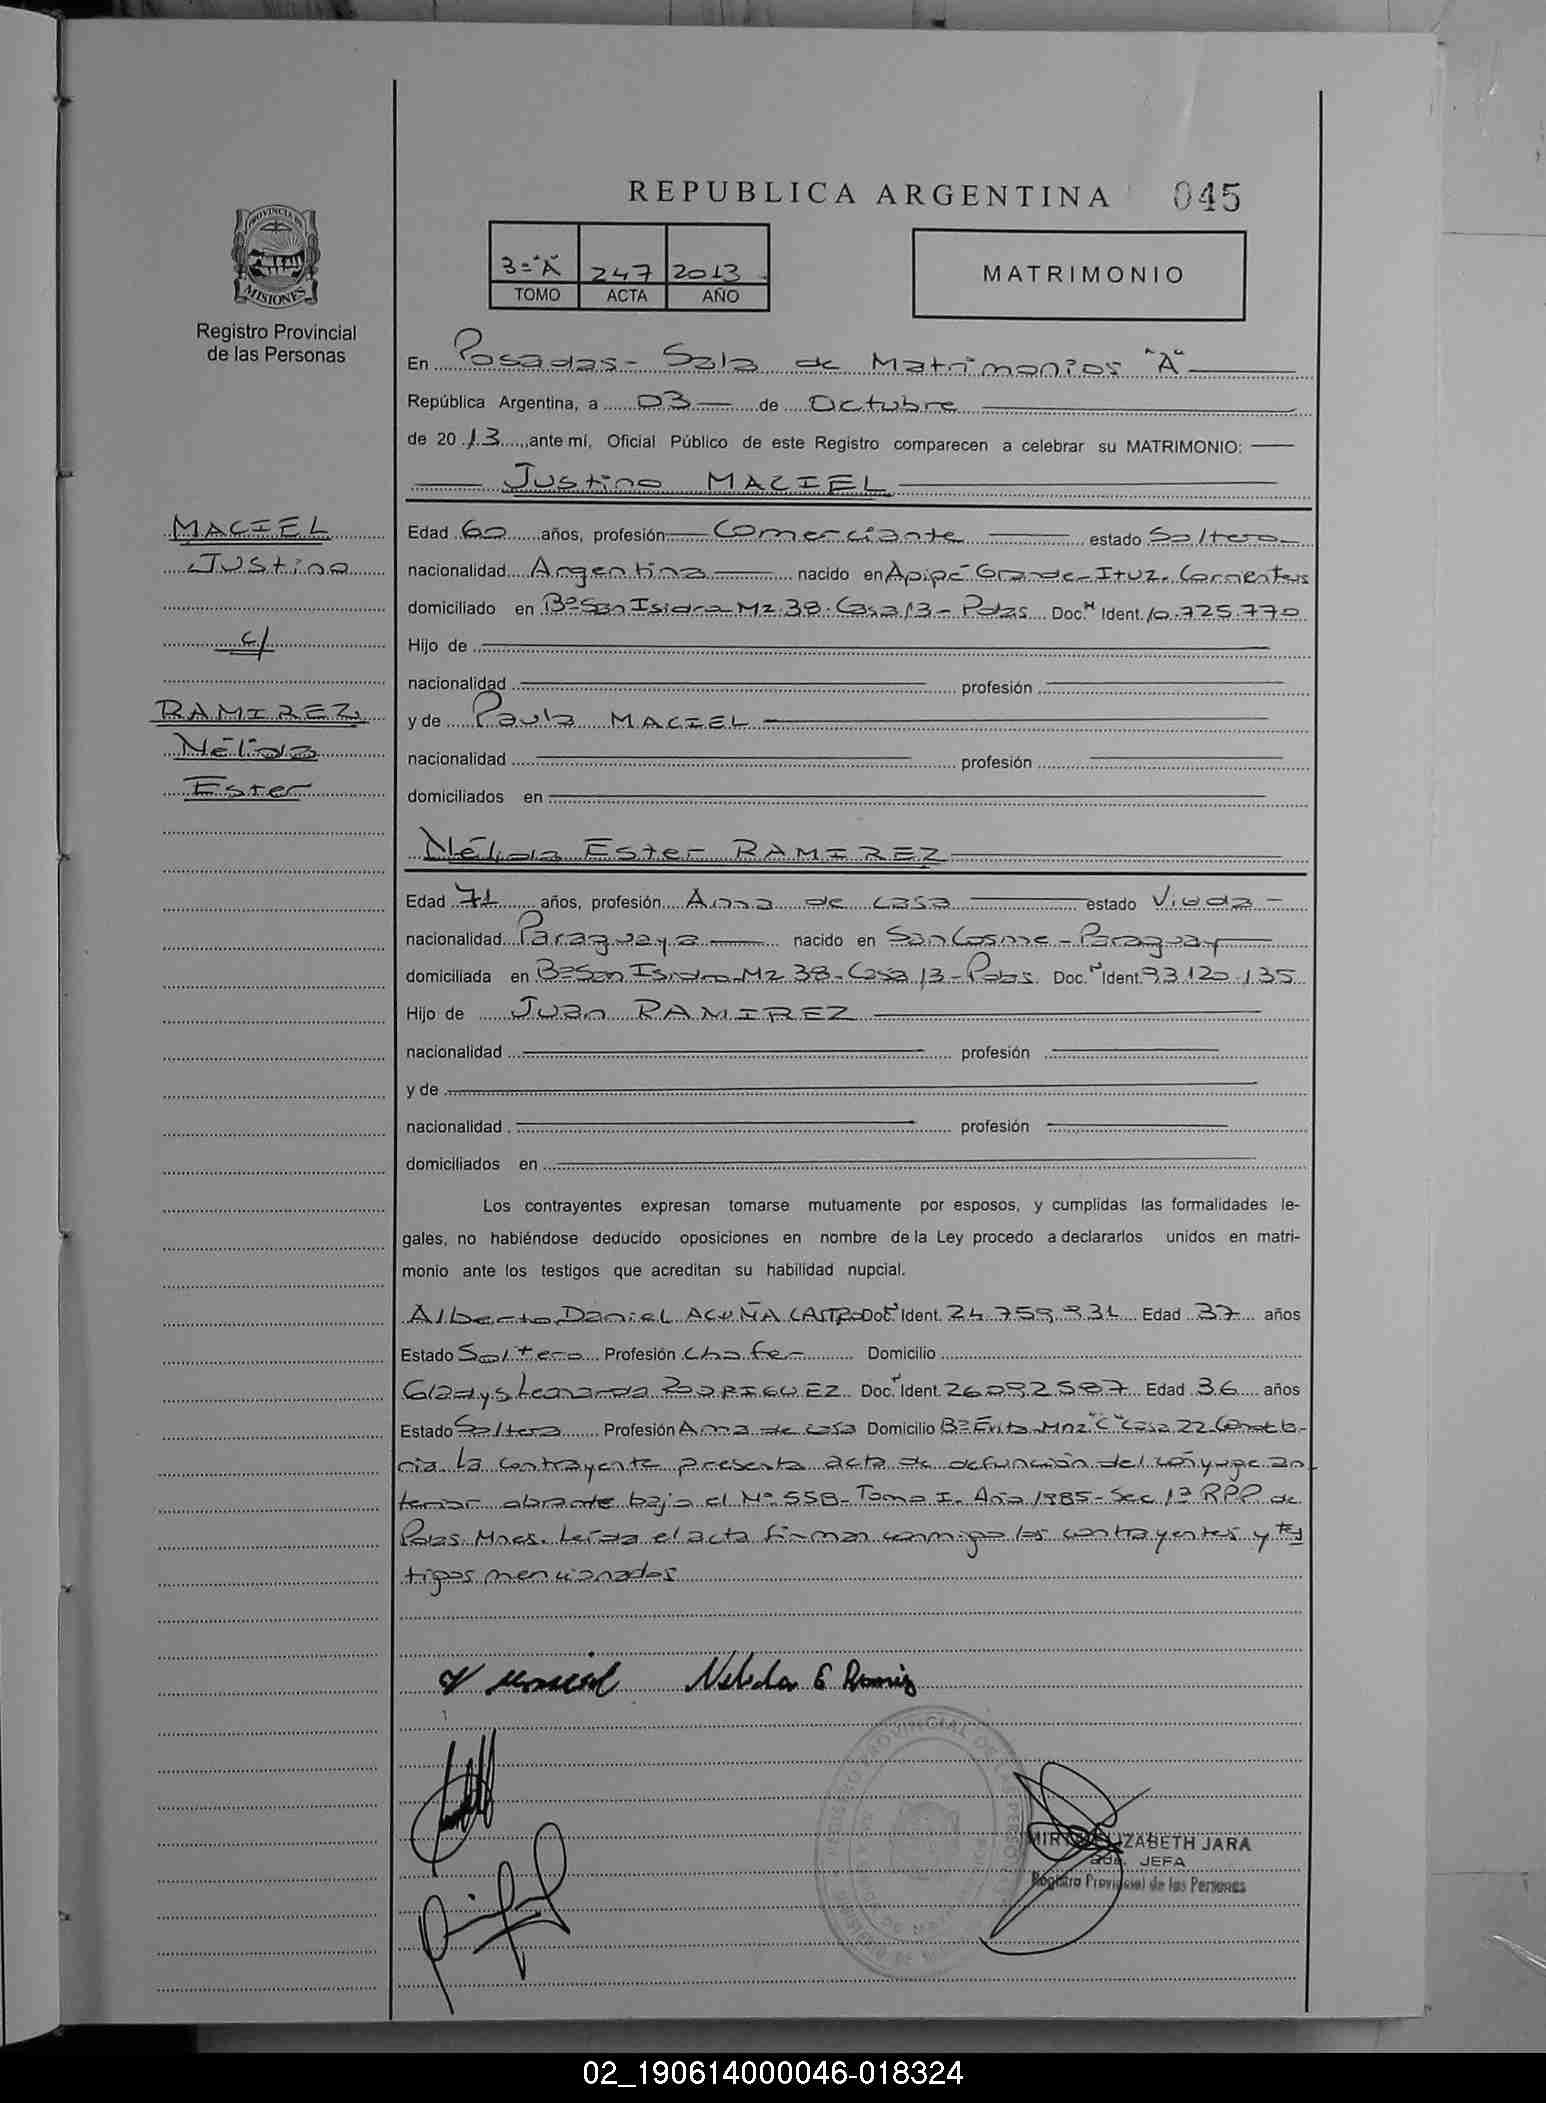 REPUBLICA ARGENTINA 045
PROVINCIA DE
MISIONES
Registro Provincial
de las Personas
3="A" 247 2013
TOMO ACTA AÑO
MATRIMONIO
En Posadas - Sala de Matrimonios "A"
República Argentina, a 03 de Octubre
de 2013 ante mí, Oficial Público de este Registro comparecen a celebrar su MATRIMONIO:
Justino MACIEL
MACIEL
Justino
c/
RAMIREZ
Nélida
Ester
Edad 60 años, profesión Comerciante estado Soltero
nacionalidad Argentina nacido en Apipé Grande - Ituz. Corrientes
domiciliado en Bº San Isidro Mz 38. Casa 13 - Pdas. Doc. Ident. 10.725.770
Hijo de
nacionalidad profesión
y de Paula MACIEL
nacionalidad profesión
domiciliados en
Nélida Ester RAMIREZ
Edad 71 años, profesión Ama de casa estado Viuda -
nacionalidad Paraguaya nacido en San Cosme - Paraguay
domiciliada en Bº San Isidro Mz 38 - Casa 13 - Pdas. Doc. Ident. 93.120.135
Hijo de Juan RAMIREZ
nacionalidad profesión
y de
nacionalidad profesión
domiciliados en
Los contrayentes expresan tomarse mutuamente por esposos, y cumplidas las formalidades le-
gales, no habiéndose deducido oposiciones en nombre de la Ley procedo a declararlos unidos en matri-
monio ante los testigos que acreditan su habilidad nupcial.
Alberto Daniel ACUÑA CASTRO Doc. Ident. 24.759.931 Edad 37 años
Estado Soltero Profesión Chofer Domicilio
Gladys Leonarda RODRIGUEZ Doc. Ident. 26.092.587 Edad 36 años
Estado Soltera Profesión Ama de casa Domicilio Bº Evita Mnz "C" Casa 22
La contrayente presenta acta de defunción del cónyuge an
terior obrante bajo el Nº 558 - Tomo I. Año 1985 - Sec 1ª RPP de
Pdas. Mnes. Leída el acta firman conmigo los contrayentes y tes
tigos mencionados
J Maciel Nelida E Ramirez
MIRTA ELIZABETH JARA
JEFA
Registro Provincial de las Personas
02_190614000046-018324